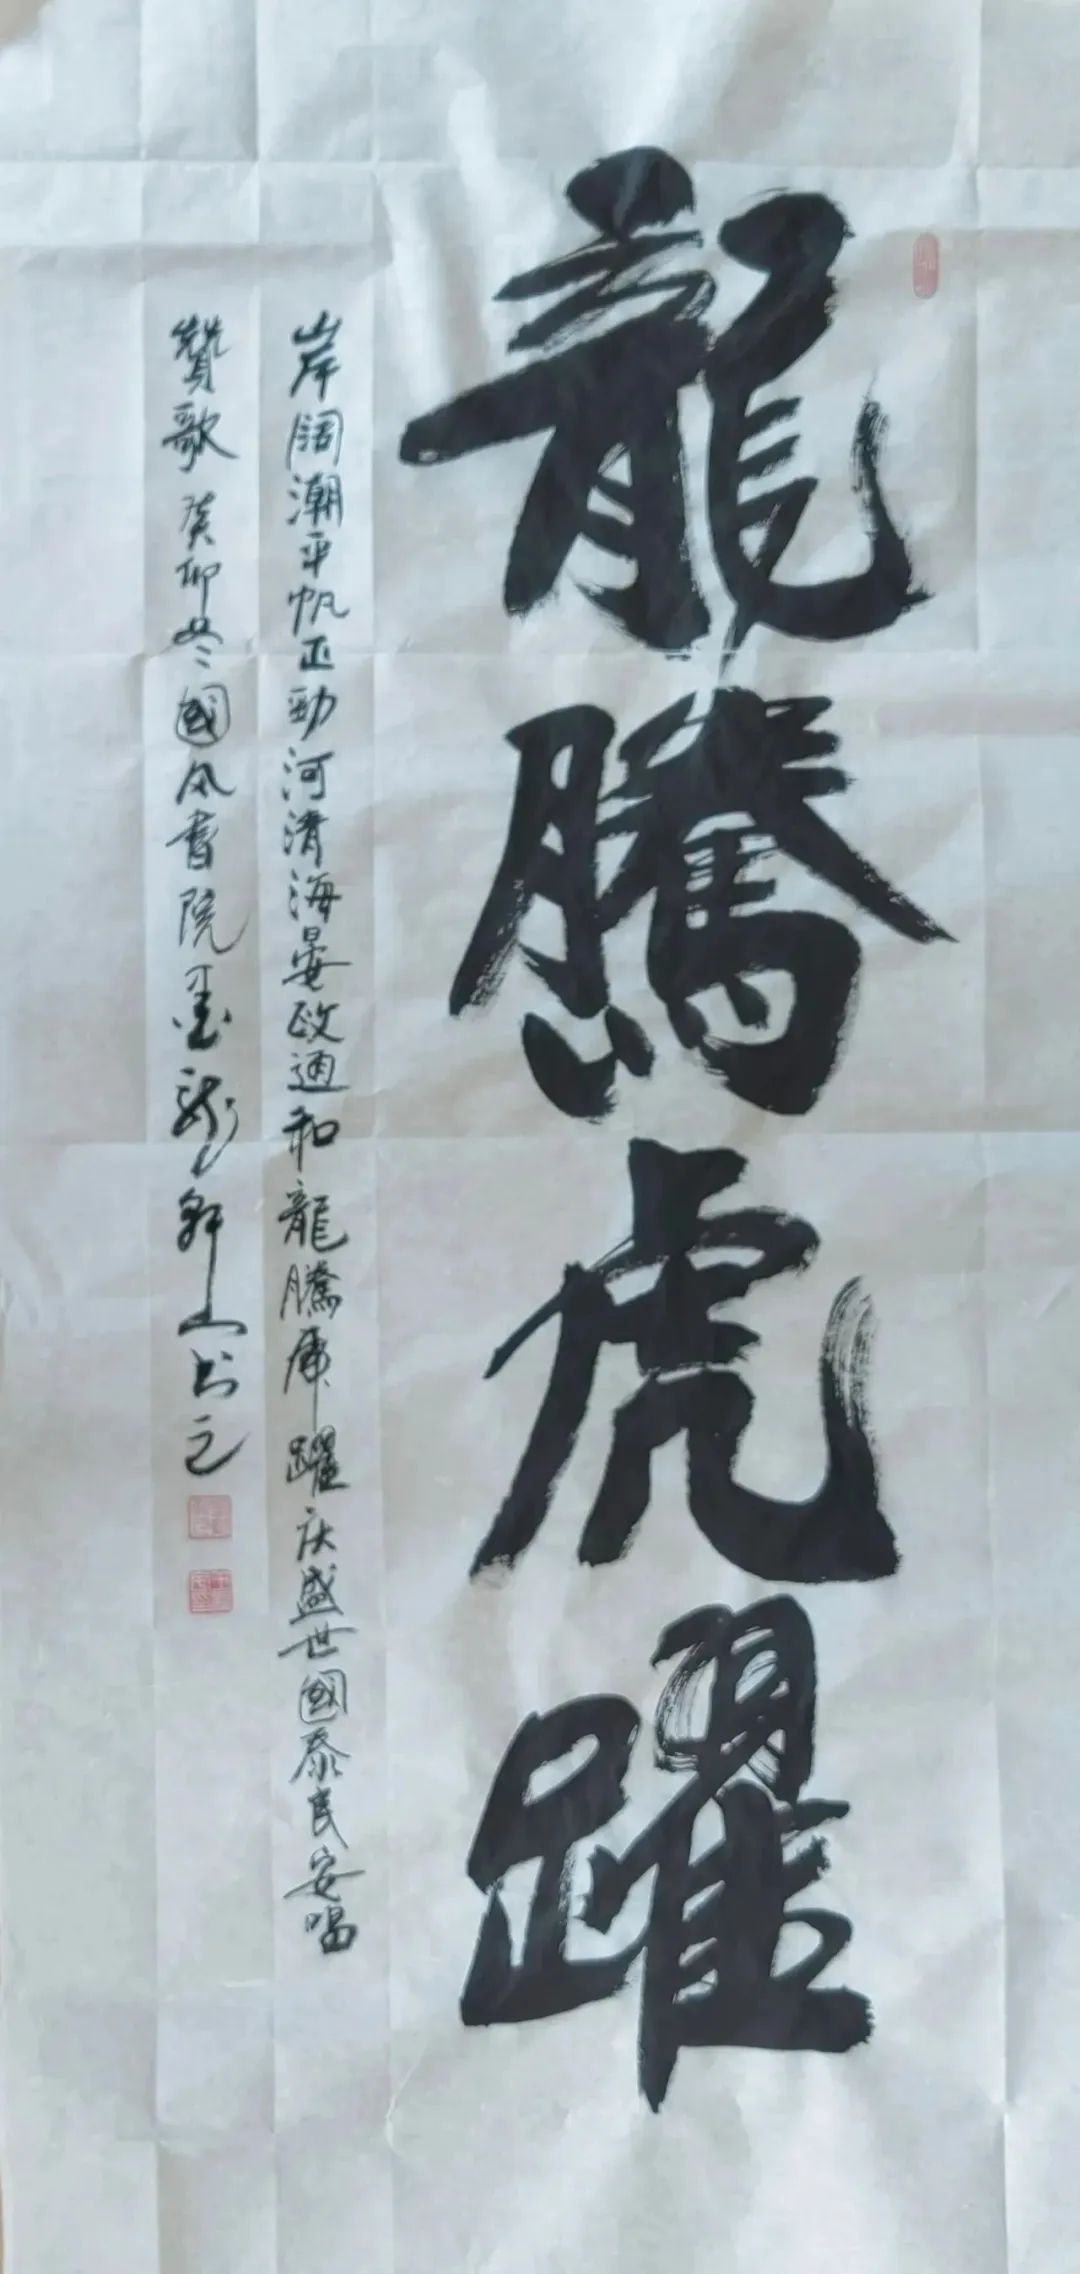 龍騰虎躍
岸阔潮平帆正勁河清海晏政通和龍騰虎躍庆盛世國泰民安唱
贊歌癸卯冬國风書院墨龍軒山书之